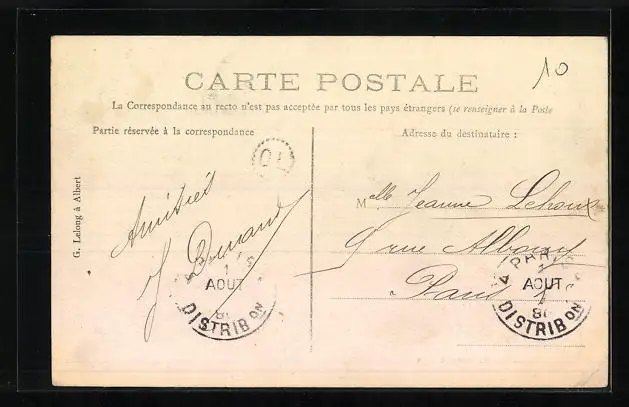 CARTE POSTALE
10
La Correspondance au recto n'est pas acceptée par tous les pays étrangers (se renseigner à la Poste
Partie réservée à la correspondance
Adresse du destinataire :
G. Lelong à Albert
OL
Amitiés
J Durand
AOUT
DISTRIB ON
Melle Jeanne
9 rue
Paris
PARIS
AOUT
DISTRIB ON